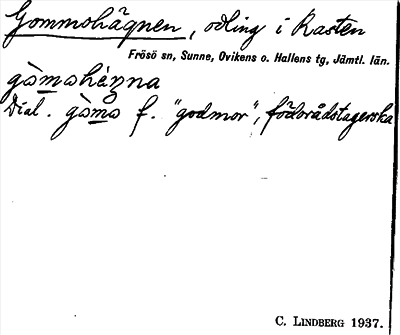 Gommshägnen, odling i Rasten
Frösö sn, Sunne, Ovikens o. Hallens tg, Jämtl. län.
gòmshèŋna
Dial. gòma f. "godmor", förbrådstagerska
C. LINDBERG 1937.